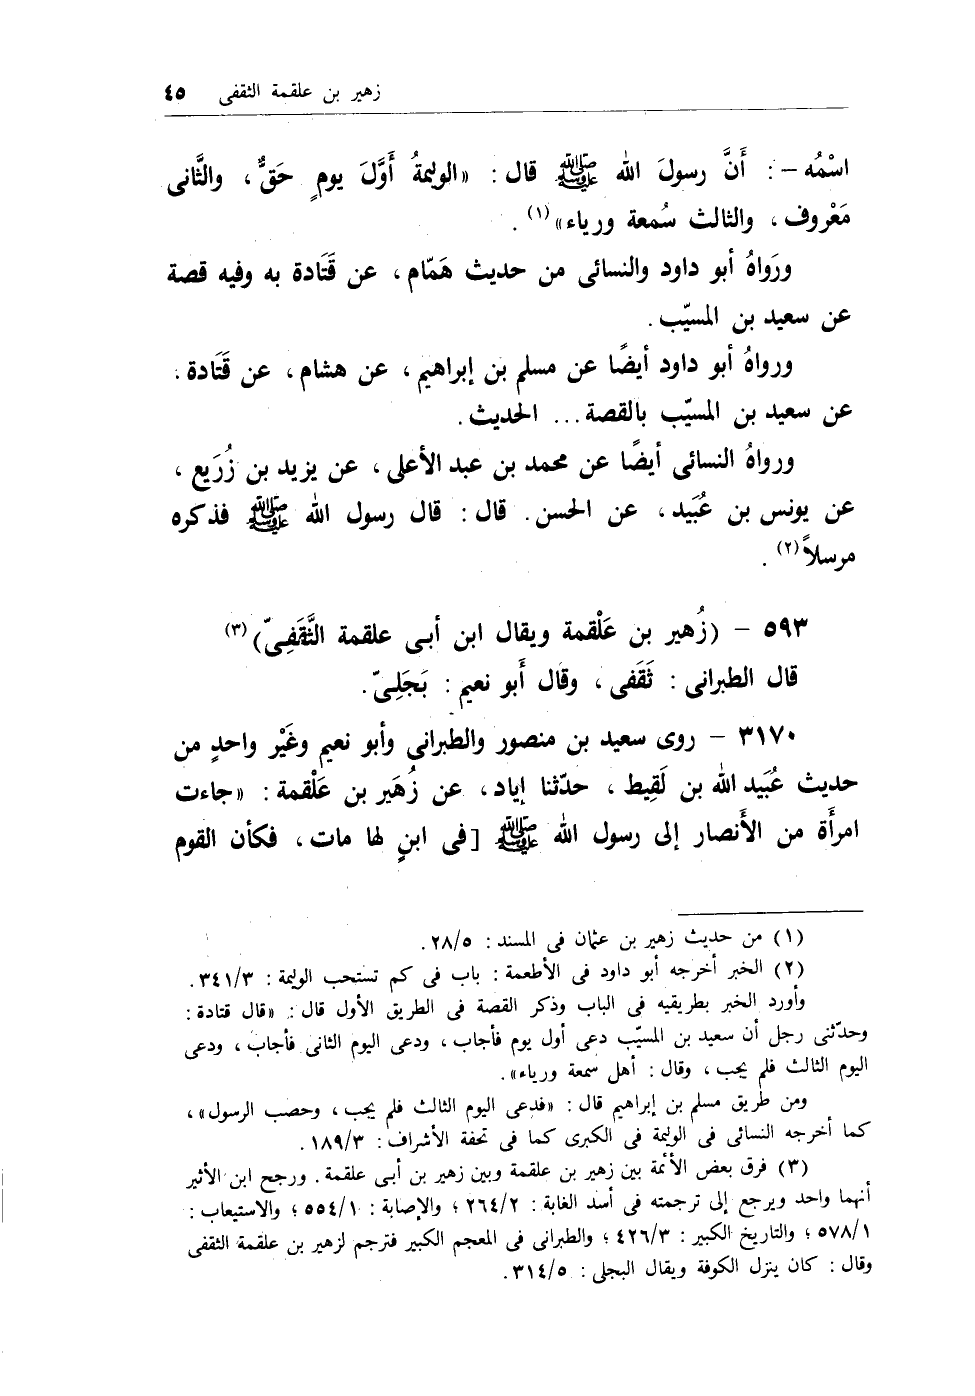 زهير بن علقمة الثقفى ٤٥
اسْمُه – : أَنَّ رسولَ الله ﷺ قال : «الوليمةُ أَوَّلَ يومٍ حَقٌّ ، والثَّانى
مَعْروف ، والثالث سُمعة ورياء» (١) .
ورَواهُ أبو داود والنسائى من حديث هَمّام ، عن قَتَادة به وفيه قصة
عن سعيد بن المسيّب .
ورواهُ أبو داود أيضًا عن مسلم بن إبراهيم ، عن هشام ، عن قَتَادة .
عن سعيد بن المسيّب بالقصة ... الحديث .
ورواهُ النسائى أيضًا عن محمد بن عبد الأعلى ، عن يزيد بن زُرَيع ،
عن يونس بن عُبَيد ، عن الحسن . قال : قال رسول الله ﷺ فذكره
مرسلاً (٢) .
٥٩٣ – (زُهير بن عَلْقمة ويقال ابن أبى علقمة الثَّقَفِىّ) (٣)
قال الطبرانى : ثَقَفى ، وقال أبو نعيم : بَجَلِىّ .
٣١٧٠ – روى سعيد بن منصور والطبرانى وأبو نعيم وغَيْر واحدٍ من
حديث عُبَيد الله بن لَقِيط ، حدّثنا إياد ، عن زُهَير بن عَلْقمة : «جاءت
امرأَة من الأَنصار إلى رسول الله ﷺ [فى ابنٍ لها مات ، فكأن القوم
(١) من حديث زهير بن عثمان فى المسند : ٢٨/٥ .
(٢) الخبر أخرجه أبو داود فى الأطعمة : باب فى كم تستحب الوليمة : ٣٤١/٣ .
وأورد الخبر بطريقيه فى الباب وذكر القصة فى الطريق الأول قال : «قال قتادة :
وحدّثنى رجل أن سعيد بن المسيّب دعى أول يوم فأجاب ، ودعى اليوم الثانى فأجاب ، ودعى
اليوم الثالث فلم يجب ، وقال : أهل سمعة ورياء» .
ومن طريق مسلم بن إبراهيم قال : «فدعى اليوم الثالث فلم يجب ، وحصب الرسول» ،
كما أخرجه النسائى فى الوليمة فى الكبرى كما فى تحفة الأشراف : ١٨٩/٣ .
(٣) فرق بعض الأئمة بين زهير بن علقمة وبين زهير بن أبى علقمة . ورجح ابن الأثير
أنهما واحد ويرجع إلى ترجمته فى أسد الغابة : ٢٦٤/٢ ؛ والإصابة : ٥٥٤/١ ؛ والاستيعاب :
٥٧٨/١ ؛ والتاريخ الكبير : ٤٢٦/٣ ؛ والطبرانى فى المعجم الكبير فترجم لزهير بن علقمة الثقفى
وقال : كان ينزل الكوفة ويقال البجلى : ٣١٤/٥ .